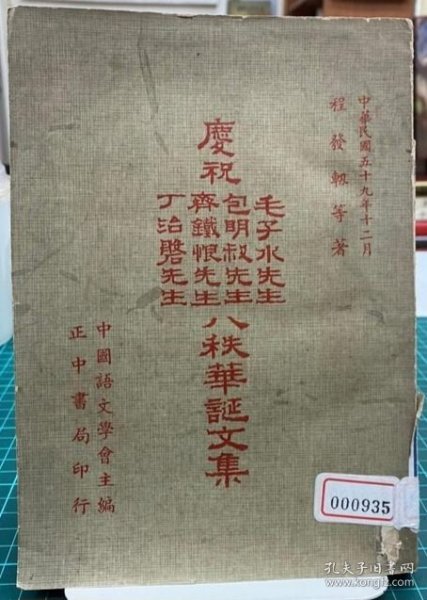 中華民國五十九年十二月
程發軔等著
慶祝
毛子水先生
包明叔先生
齊鐵恨先生
丁治磐先生
八秩華誕文集
中國語文學會主編
正中書局印行
000935
孔夫子旧书网
www.kongfz.com